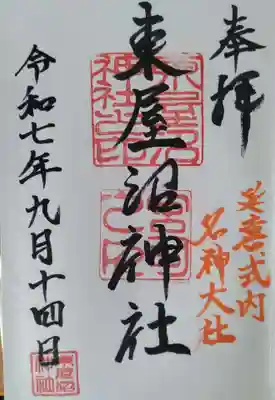 奉拝
延喜式内
名神大社
東屋沼神社
令和七年九月十四日